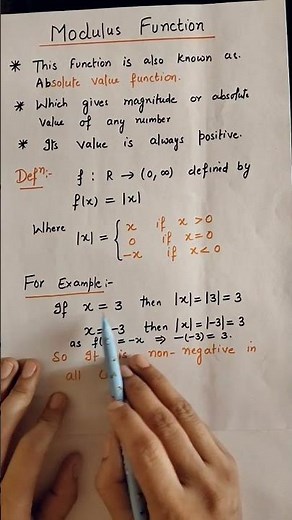 Modulus Function
* This function is also known as.
Absolute value function.
* Which gives magnitude or absolute
value of any number
* Its value is always positive.
Defn:- f : R → (0, ∞) defined by
f(x) = |x|
Where |x| = { x if x > 0
0 if x = 0
-x if x < 0
For Example:-
If x = 3 then |x| = |3| = 3
x = -3 then |x| = |-3| = 3
as = -x ⇒ -(-3) = 3.
So It is non-negative in
all